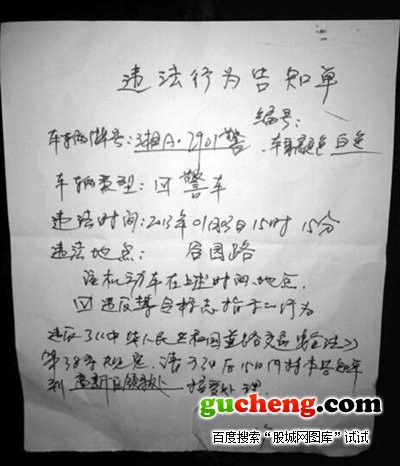 违法行为告知单
编号:
车辆牌号:湘A·2901警 车身颜色 白色
车辆类型:☑警车
违法时间:2013年01月03日15时15分
违法地点: 谷园路
该机动车在上述时间、地点
☑违反禁令标志指示的行为
违反了《中华人民共和国道路交通安全法》
第38条规定,请于3日后15日内持本告知单
到 接受处理
gucheng.com
百度搜索“股城网图库”试试